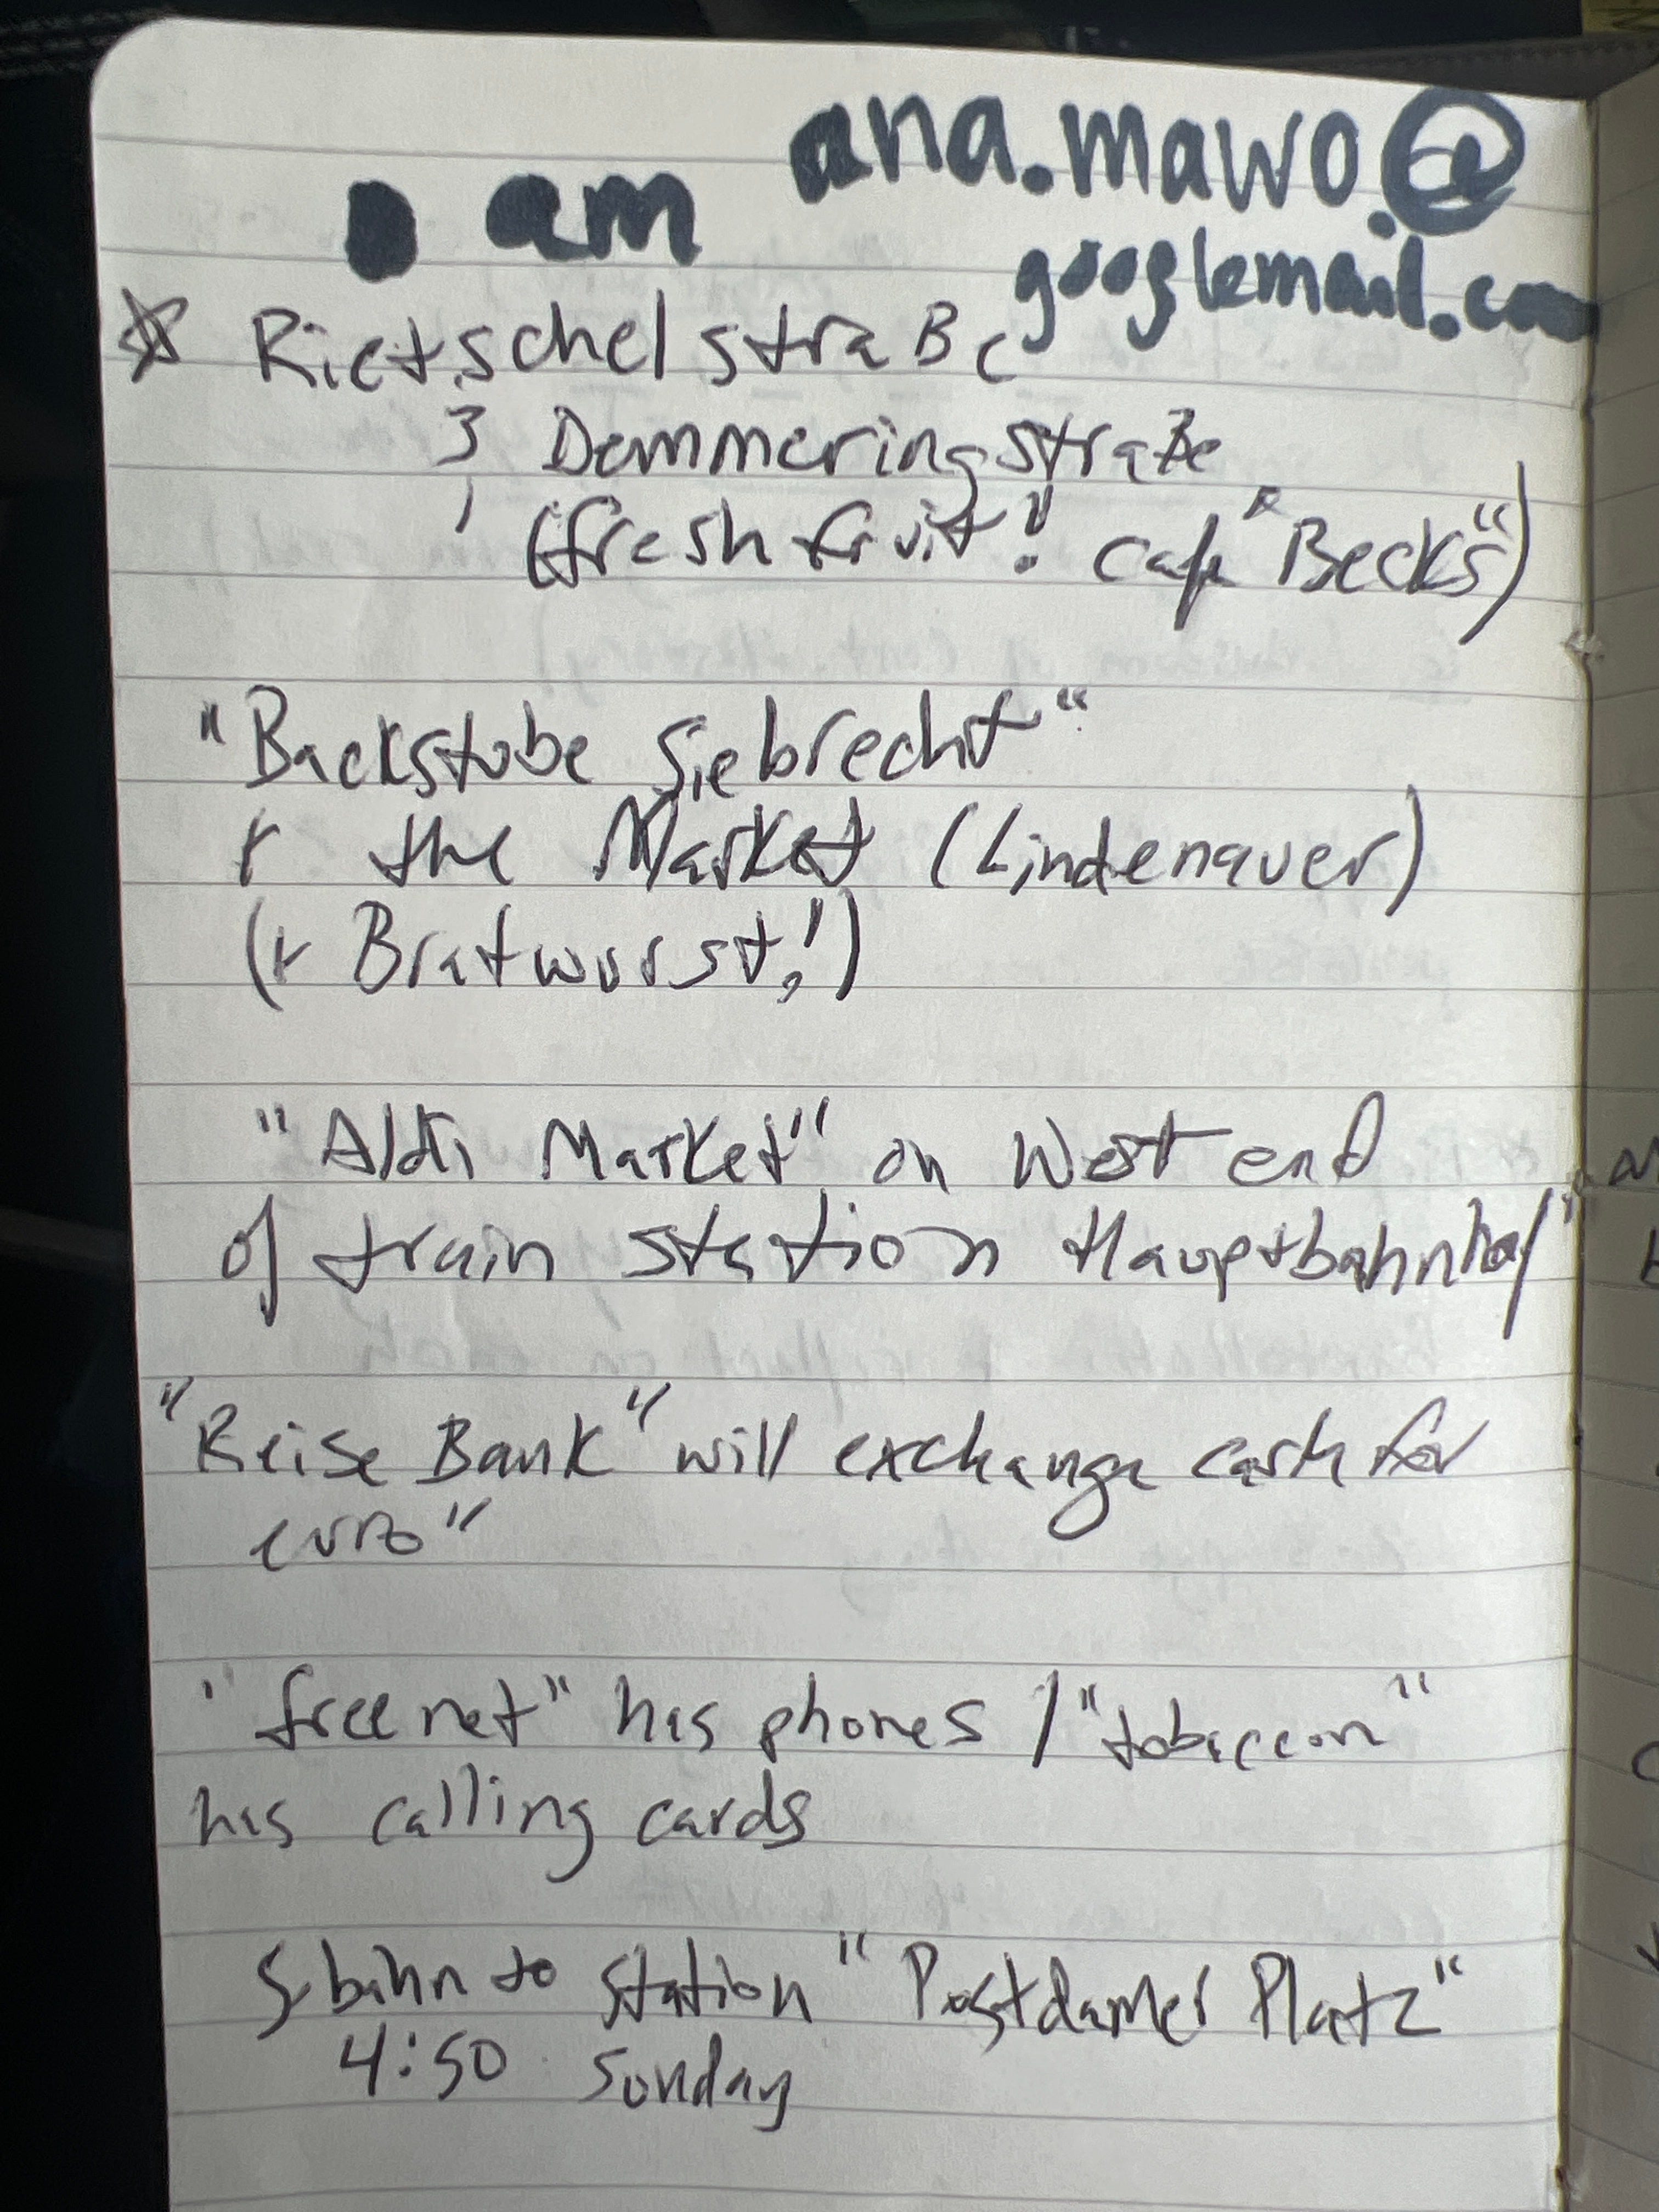 am ana.mawo.@
googlemail.com
☆ Rietschelstraße
3 Demmeringstraße
(fresh fruit! cafe "Becks")
"Backstube Siebrecht"
+ the Market (Lindenauer)
(+ Bratwurst!)
"Aldi Market" on West end
of train station Hauptbahnhof"
"Reise Bank" will exchange cash for
euro"
"freenet" has phones / "tobaccon"
has calling cards
S bahn to station "Postdamer Platz"
4:50 Sunday